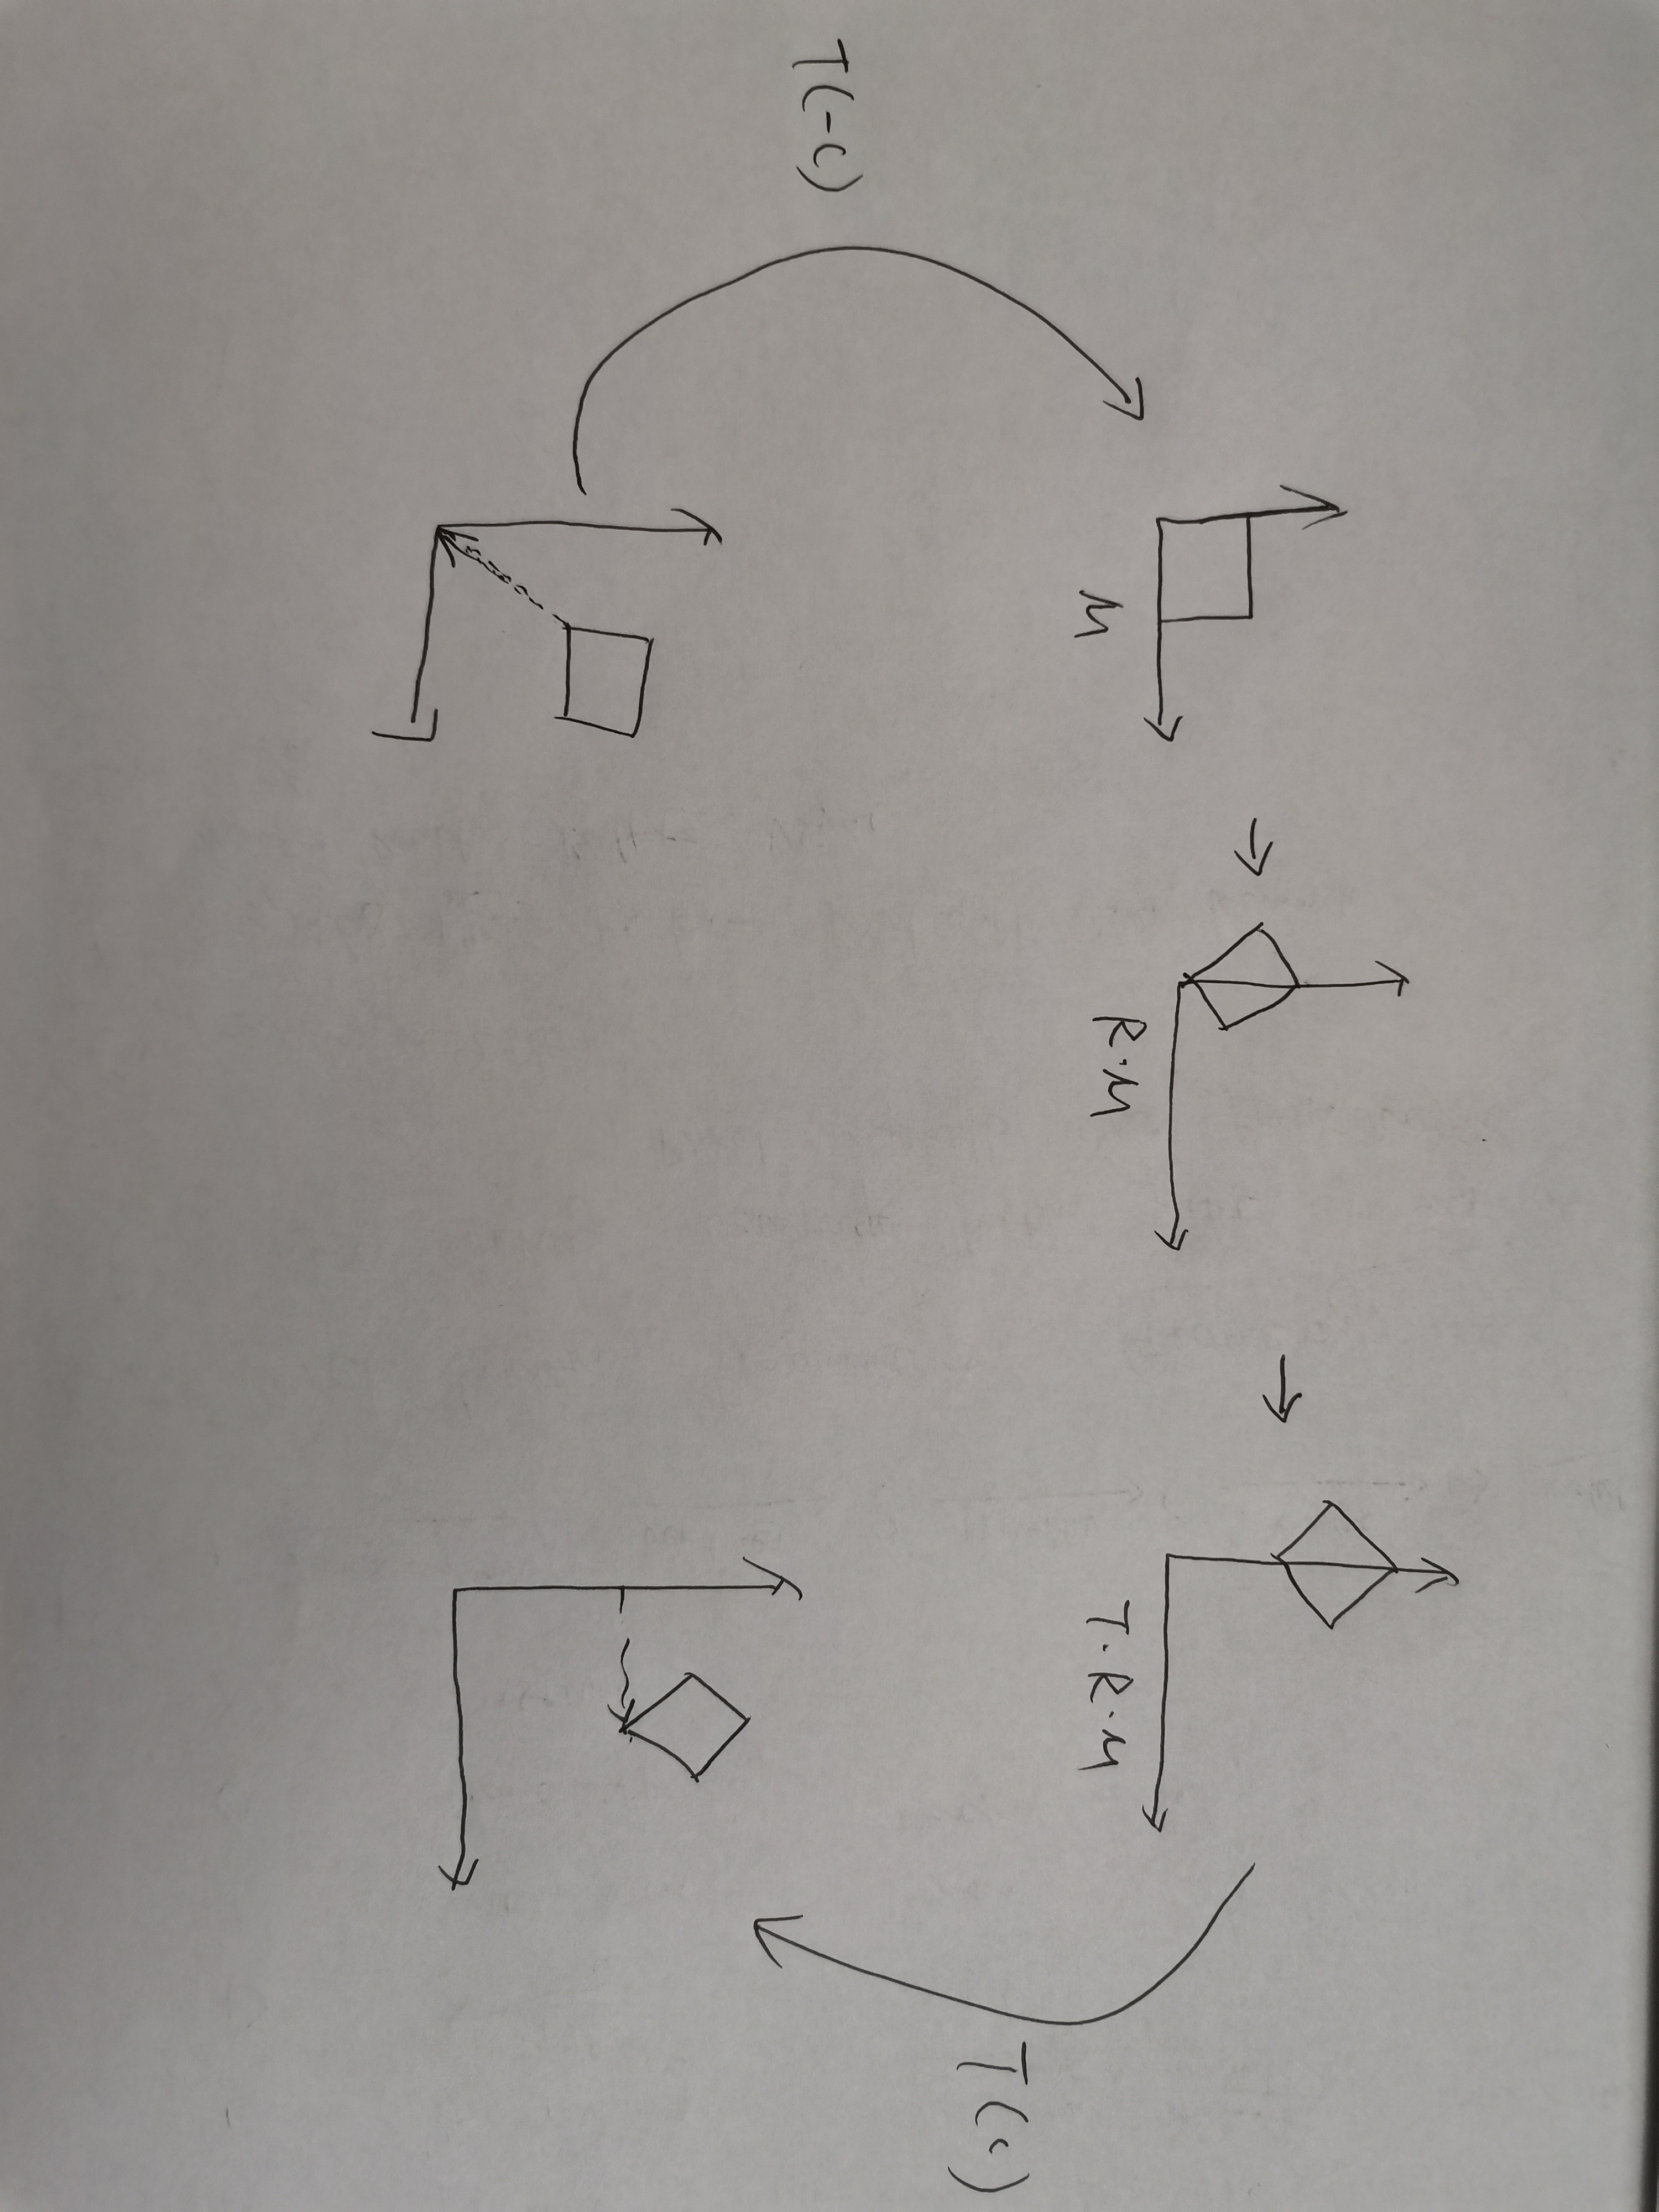 M
R·M
T·R·M
T(c)
T(-c)